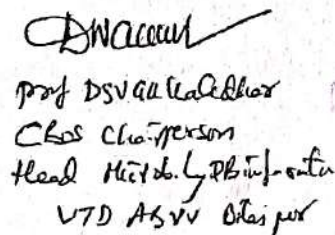 Prof DSVGK Kaladhar
CBOS Chairperson
Head Microb. & Bioinformatics
UTD ABVV Bilaspur